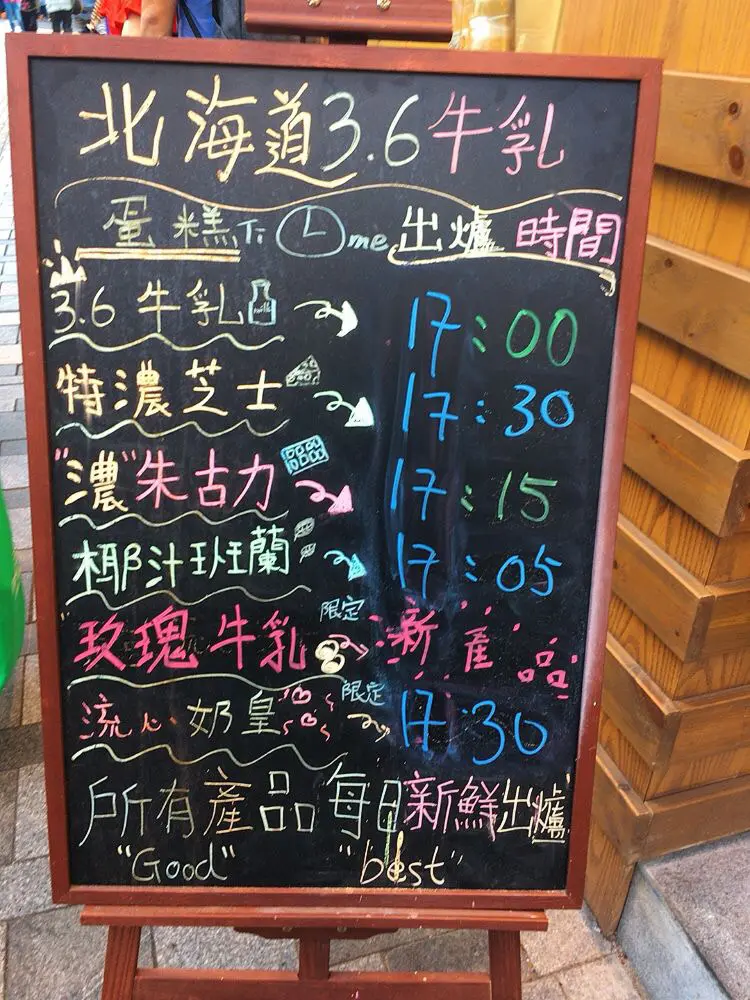 北海道3.6牛乳
蛋糕Time出爐時間
3.6 牛乳 milk 17:00
特濃芝士 17:30
"濃"朱古力 17:15
椰汁班蘭 17:05
玫瑰牛乳 限定 新產品
流心奶皇 限定 17:30
所有產品每日新鮮出爐
"Good" "best"